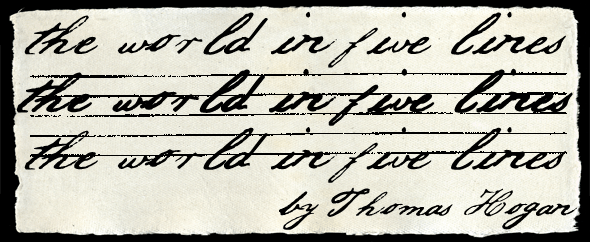 the world in five lines
the world in five lines
the world in five lines
by Thomas Hogan